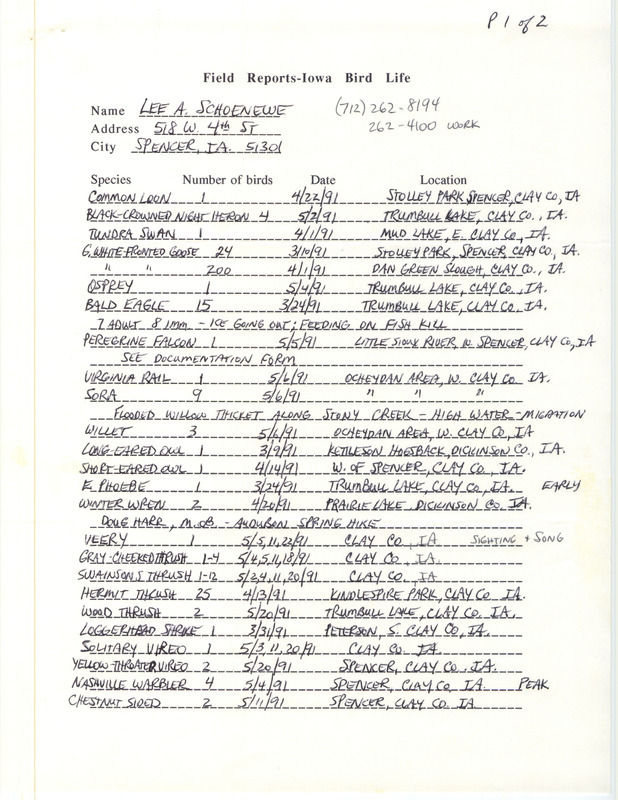 P 1 of 2
Field Reports-Iowa Bird Life
Name LEE A. SCHOENEWE (712) 262-8194
Address 518 W. 4th ST 262-4100 WORK
City SPENCER, IA. 51301
Species Number of birds Date Location
COMMON LOON 1 4/22/91 STOLLEY PARK SPENCER, CLAY CO, IA
BLACK-CROWNED NIGHT HERON 4 5/2/91 TRUMBULL LAKE, CLAY CO., IA.
TUNDRA SWAN 1 4/1/91 MUD LAKE, E. CLAY CO., IA.
G. WHITE-FRONTED GOOSE 24 3/10/91 STOLLEY PARK, SPENCER, CLAY CO., IA.
" " 200 4/1/91 DAN GREEN SLOUGH, CLAY CO., IA
OSPREY 1 5/4/91 TRUMBULL LAKE, CLAY CO., IA.
BALD EAGLE 15 3/24/91 TRUMBULL LAKE, CLAY CO., IA.
7 ADULT 8 IMM - ICE GOING OUT; FEEDING ON FISH KILL
PEREGRINE FALCON 1 5/5/91 LITTLE SIOUX RIVER, W. SPENCER, CLAY CO, IA
SEE DOCUMENTATION FORM
VIRGINIA RAIL 1 5/6/91 OCHEYDAN AREA, W. CLAY CO IA.
SORA 9 5/6/91 " " "
FLOODED WILLOW THICKET ALONG STONY CREEK - HIGH WATER - MIGRATION
WILLET 3 5/6/91 OCHEYDAN AREA, W. CLAY CO, IA
LONG-EARED OWL 1 3/9/91 KETTLESON HOGSBACK, DICKINSON CO., IA.
SHORT-EARED OWL 1 4/14/91 W. OF SPENCER, CLAY CO, IA.
E. PHOEBE 1 3/24/91 TRUMBULL LAKE, CLAY CO, IA. EARLY
WINTER WREN 2 4/20/91 PRAIRIE LAKE, DICKINSON CO. IA.
DOUG HARR, M. OB. - AUDUBON SPRING HIKE
VEERY 1 5/5,11,22/91 CLAY CO., IA SIGHTING + SONG
GRAY-CHEEKED THRUSH 1-4 5/4,5,11,18/91 CLAY CO., IA.
SWAINSONS THRUSH 1-12 5/2,4,11,20/91 CLAY CO., IA
HERMIT THRUSH 25 4/13/91 KINDLESPIRE PARK, CLAY CO IA.
WOOD THRUSH 2 5/20/91 TRUMBULL LAKE, CLAY CO, IA.
LOGGERHEAD SHRIKE 1 3/31/91 PETERSON, S. CLAY CO, IA.
SOLITARY VIREO 1 5/3,11,20/91 CLAY CO. IA.
YELLOW-THROATED VIREO 2 5/20/91 SPENCER, CLAY CO, IA.
NASHVILLE WARBLER 4 5/4/91 SPENCER, CLAY CO IA. PEAK
CHESTNUT SIDED 2 5/11/91 SPENCER, CLAY CO IA